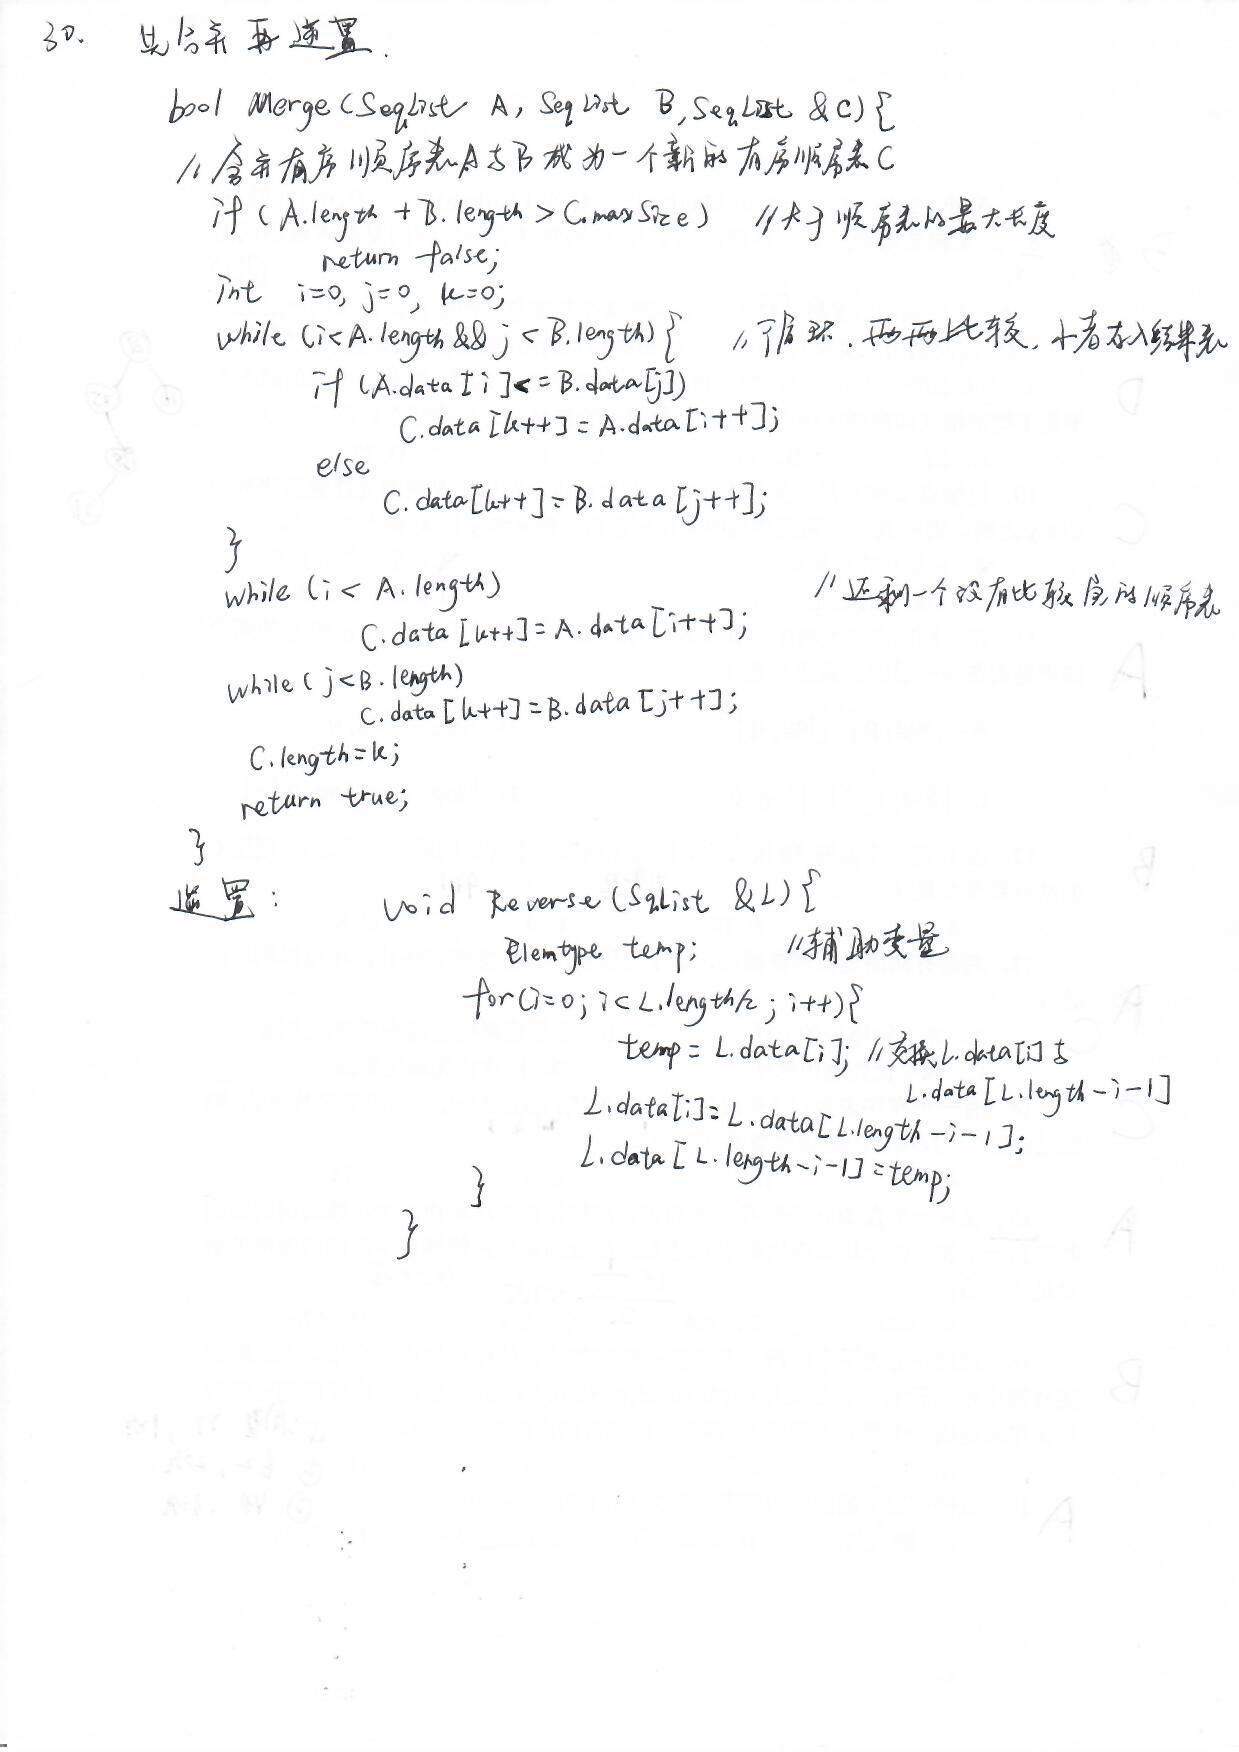 30. 先合并再逆置.
bool Merge(SeqList A, SeqList B, SeqList &C){
//合并有序顺序表A与B成为一个新的有序顺序表C
if (A.length + B.length > C.maxSize) //大于顺序表的最大长度
return false;
int i=0, j=0, k=0;
while (i<A.length && j<B.length){ //循环,两两比较,小者存入结果表
if (A.data[i]<=B.data[j])
C.data[k++]=A.data[i++];
else
C.data[k++]=B.data[j++];
}
while (i<A.length) //还剩一个没有比较完的顺序表
C.data[k++]=A.data[i++];
while (j<B.length)
C.data[k++]=B.data[j++];
C.length=k;
return true;
}
逆置: void Reverse(SqList &L){
Elemtype temp; //辅助变量
for(i=0; i<L.length/2; i++){
temp=L.data[i]; //交换L.data[i]与
L.data[L.length-i-1]
L.data[i]=L.data[L.length-i-1];
L.data[L.length-i-1]=temp;
}
}